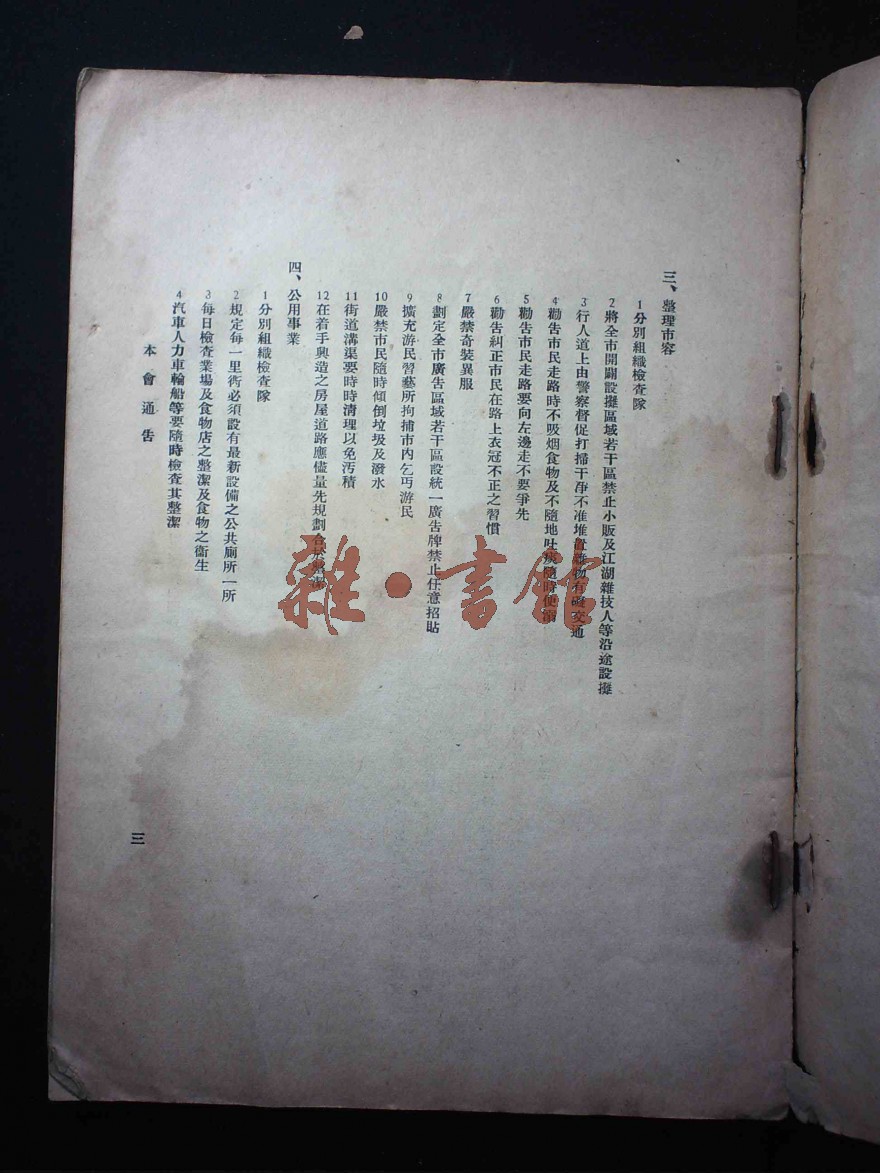 三、整理市容
1分別組織檢查隊
2將全市開闢設攤區域若干區禁止小販及江湖雜技人等沿途設攤
3行人道上由警察督促打掃干淨不准堆置雜物有礙交通
4勸告市民走路時不吸烟食物及不隨地吐痰隨時便溺
5勸告市民走路要向左邊走不要爭先
6勸告糾正市民在路上衣冠不正之習慣
7嚴禁奇裝異服
8劃定全市廣告區域若干區設統一廣告牌禁止任意招貼
9擴充游民習藝所拘捕市內乞丐游民
10嚴禁市民隨時傾倒垃圾及潑水
11街道溝渠要時時清理以免汚積
12在着手興造之房屋道路應儘量先規劃合於整潔
四、公用事業
1分別組織檢查隊
2規定每一里衖必須設有最新設備之公共廁所一所
3每日檢查業場及食物店之整潔及食物之衞生
4汽車人力車輪船等要隨時檢查其整潔
本會通告
三
雜·書館